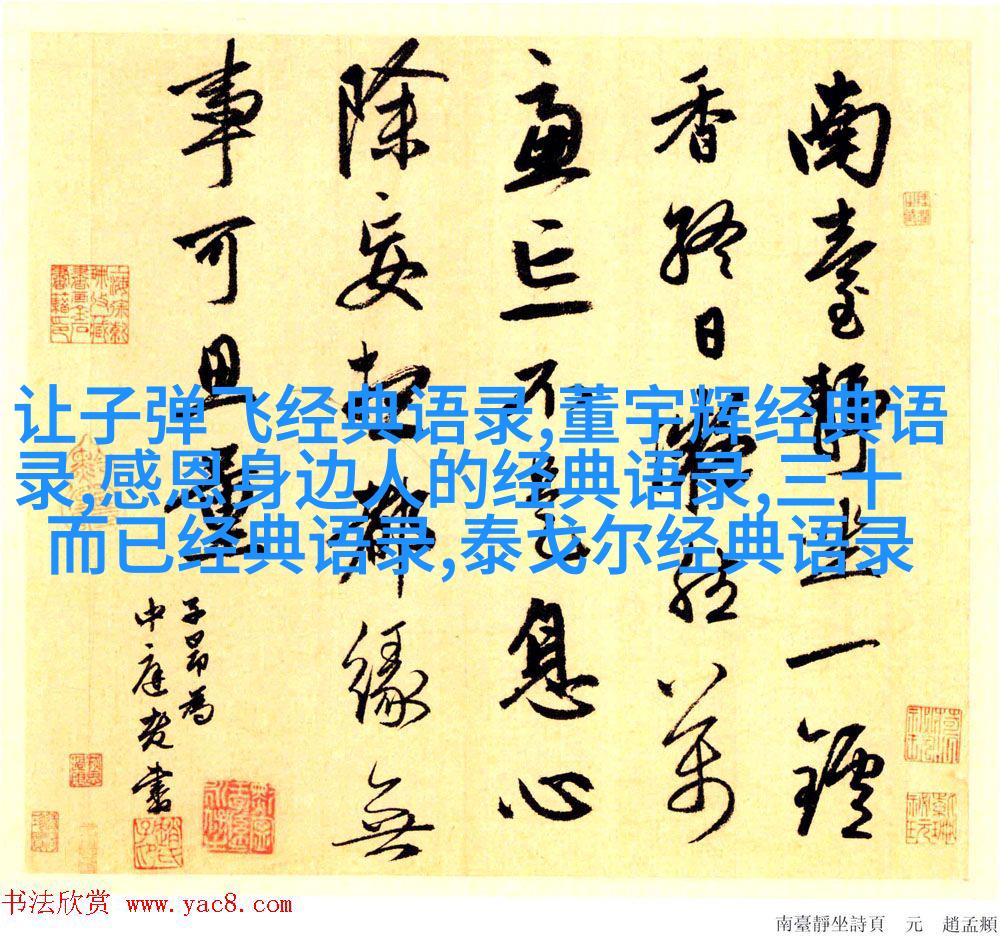 南臺靜坐一鑪
香終日凝然萬
慮亡不是息心
除妄想都緣無
事可思量
子昂為
中庭老書
让子弹飞经典语录,董宇辉经典语
录,感恩身边人的经典语录,三十
而已经典语录,泰戈尔经典语录
书法欣赏 www.yac8.com
南臺靜坐詩頁 元 趙孟頫